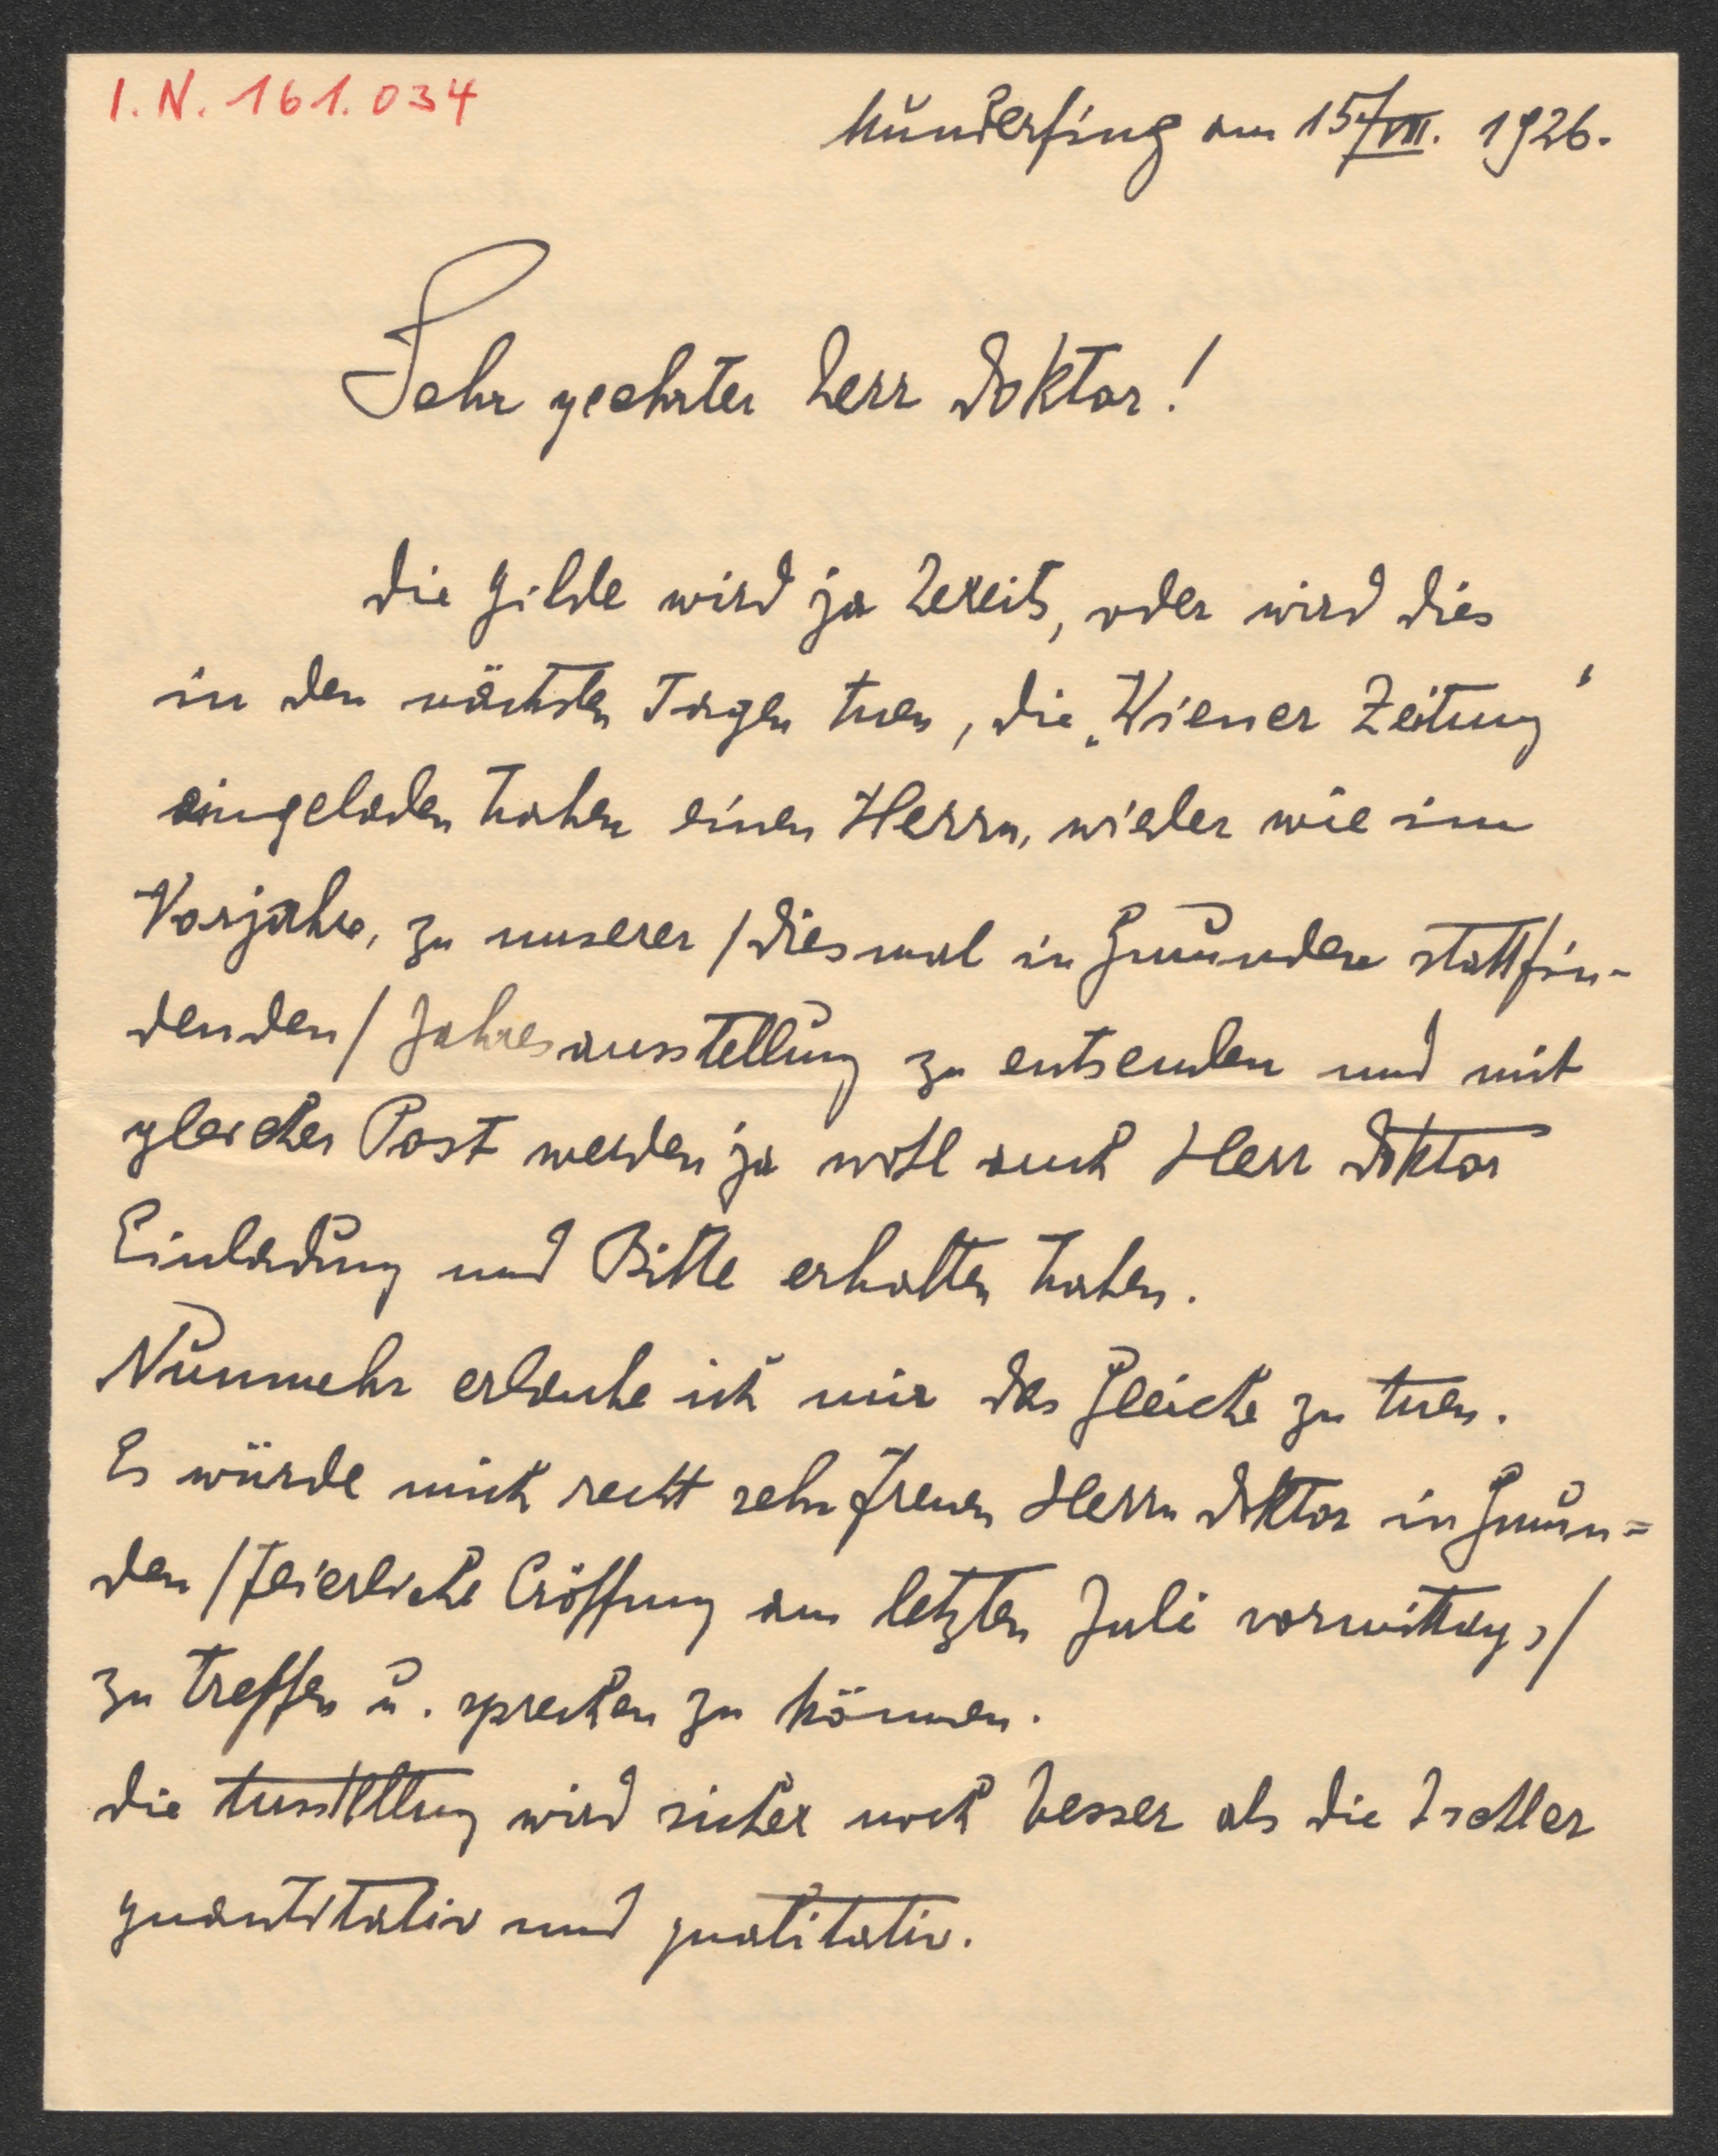 I.N. 161.034
Munderfing am 15./VII. 1926.
Sehr geehrter Herr Doktor!
Die Gilde wird ja bereits, oder wird dies
in den nächsten Tagen tuen, die „Wiener Zeitung"
eingeladen haben einen Herrn, wieder wie im
Vorjahre, zu unserer /diesmal in Gmunden stattfin-
denden/ Jahresausstellung zu entsenden und mit
gleicher Post werden ja wohl auch Herr Doktor
Einladung und Bitte erhalten haben.
Nunmehr erlaube ich mir das Gleiche zu tuen.
Es würde mich recht sehr freuen Herrn Doktor in Gmun=
den /feierliche Eröffnung am letzten Juli vormittags/
zu treffen u. sprechen zu können.
Die Ausstellung wird sicher noch besser als die Ischler
quantitativ und qualitativ.